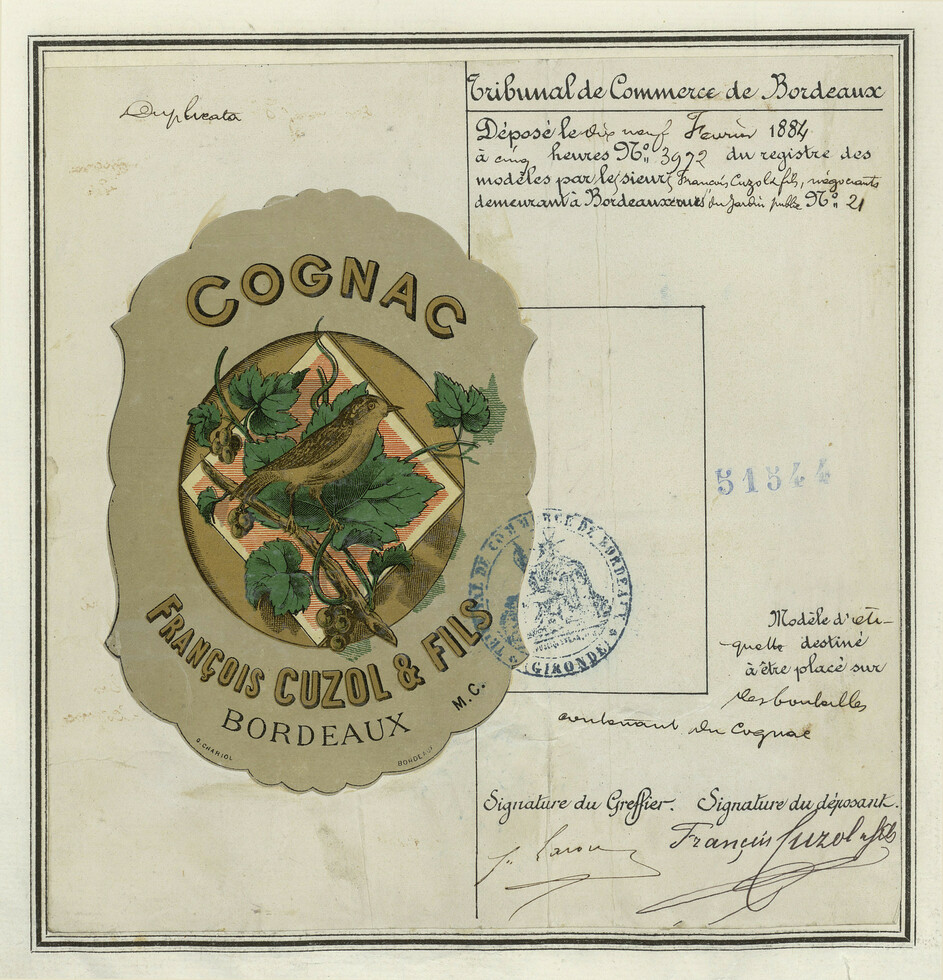 Duplicata
Tribunal de Commerce de Bordeaux
Déposé le dix neuf Fevrier 1884
à cinq heures N° 3972 du registre des
modèles par le sieurs François Cuzol & fils, négociants
demeurant à Bordeaux rue du Jardin public N° 21
COGNAC
FRANÇOIS CUZOL & FILS
BORDEAUX
M.C.
G. CHARIOL
BORDEAUX
TRIBUNAL DE COMMERCE DE BORDEAUX
GIRONDE
51544
Modèle d'éti-
quette destiné
à être placé sur
des bouteilles
contenant du Cognac
Signature du Greffier. Signature du déposant.
François Cuzol & fils